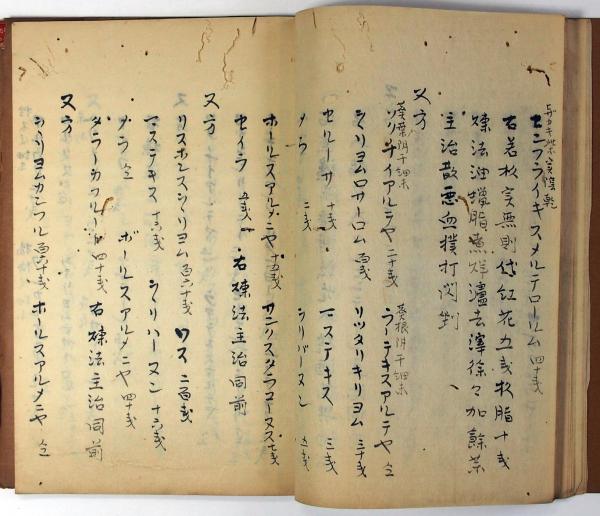 センフライキスメルテロールム 四十戔
右若松実無則代紅花五戔松脂十戔
煉法油蠟脂煮烊濾去滓徐々加餘薬
主治散悪血撲打閃
又方
葵葉阴干細末
ソリチイアルテヤ 二十戔
葵根阴干細末
ラーテキスアルテヤ 仝
シリヨムロサーロム 百戔
リツタリキリヨム 三十戔
セルーサ 十戔
マステキス 三戔
二戔
ラリハーヌン 五戔
ホールスアルメニヤ 十五戔
サンクスダラコーヌス 七戔
セイラ 五戔
右煉法主治同前
又方
リスホレスシリヨム 百六十戔
ワス 二百戔
マステキス 十六戔
ラリハーヌン 十六戔
メラ 仝
ボールスアルメニヤ 四十戔
四十戔
右煉法主治同前
又方
ラリヨムカンフル 百六十戔
ホールスアルメニヤ 仝